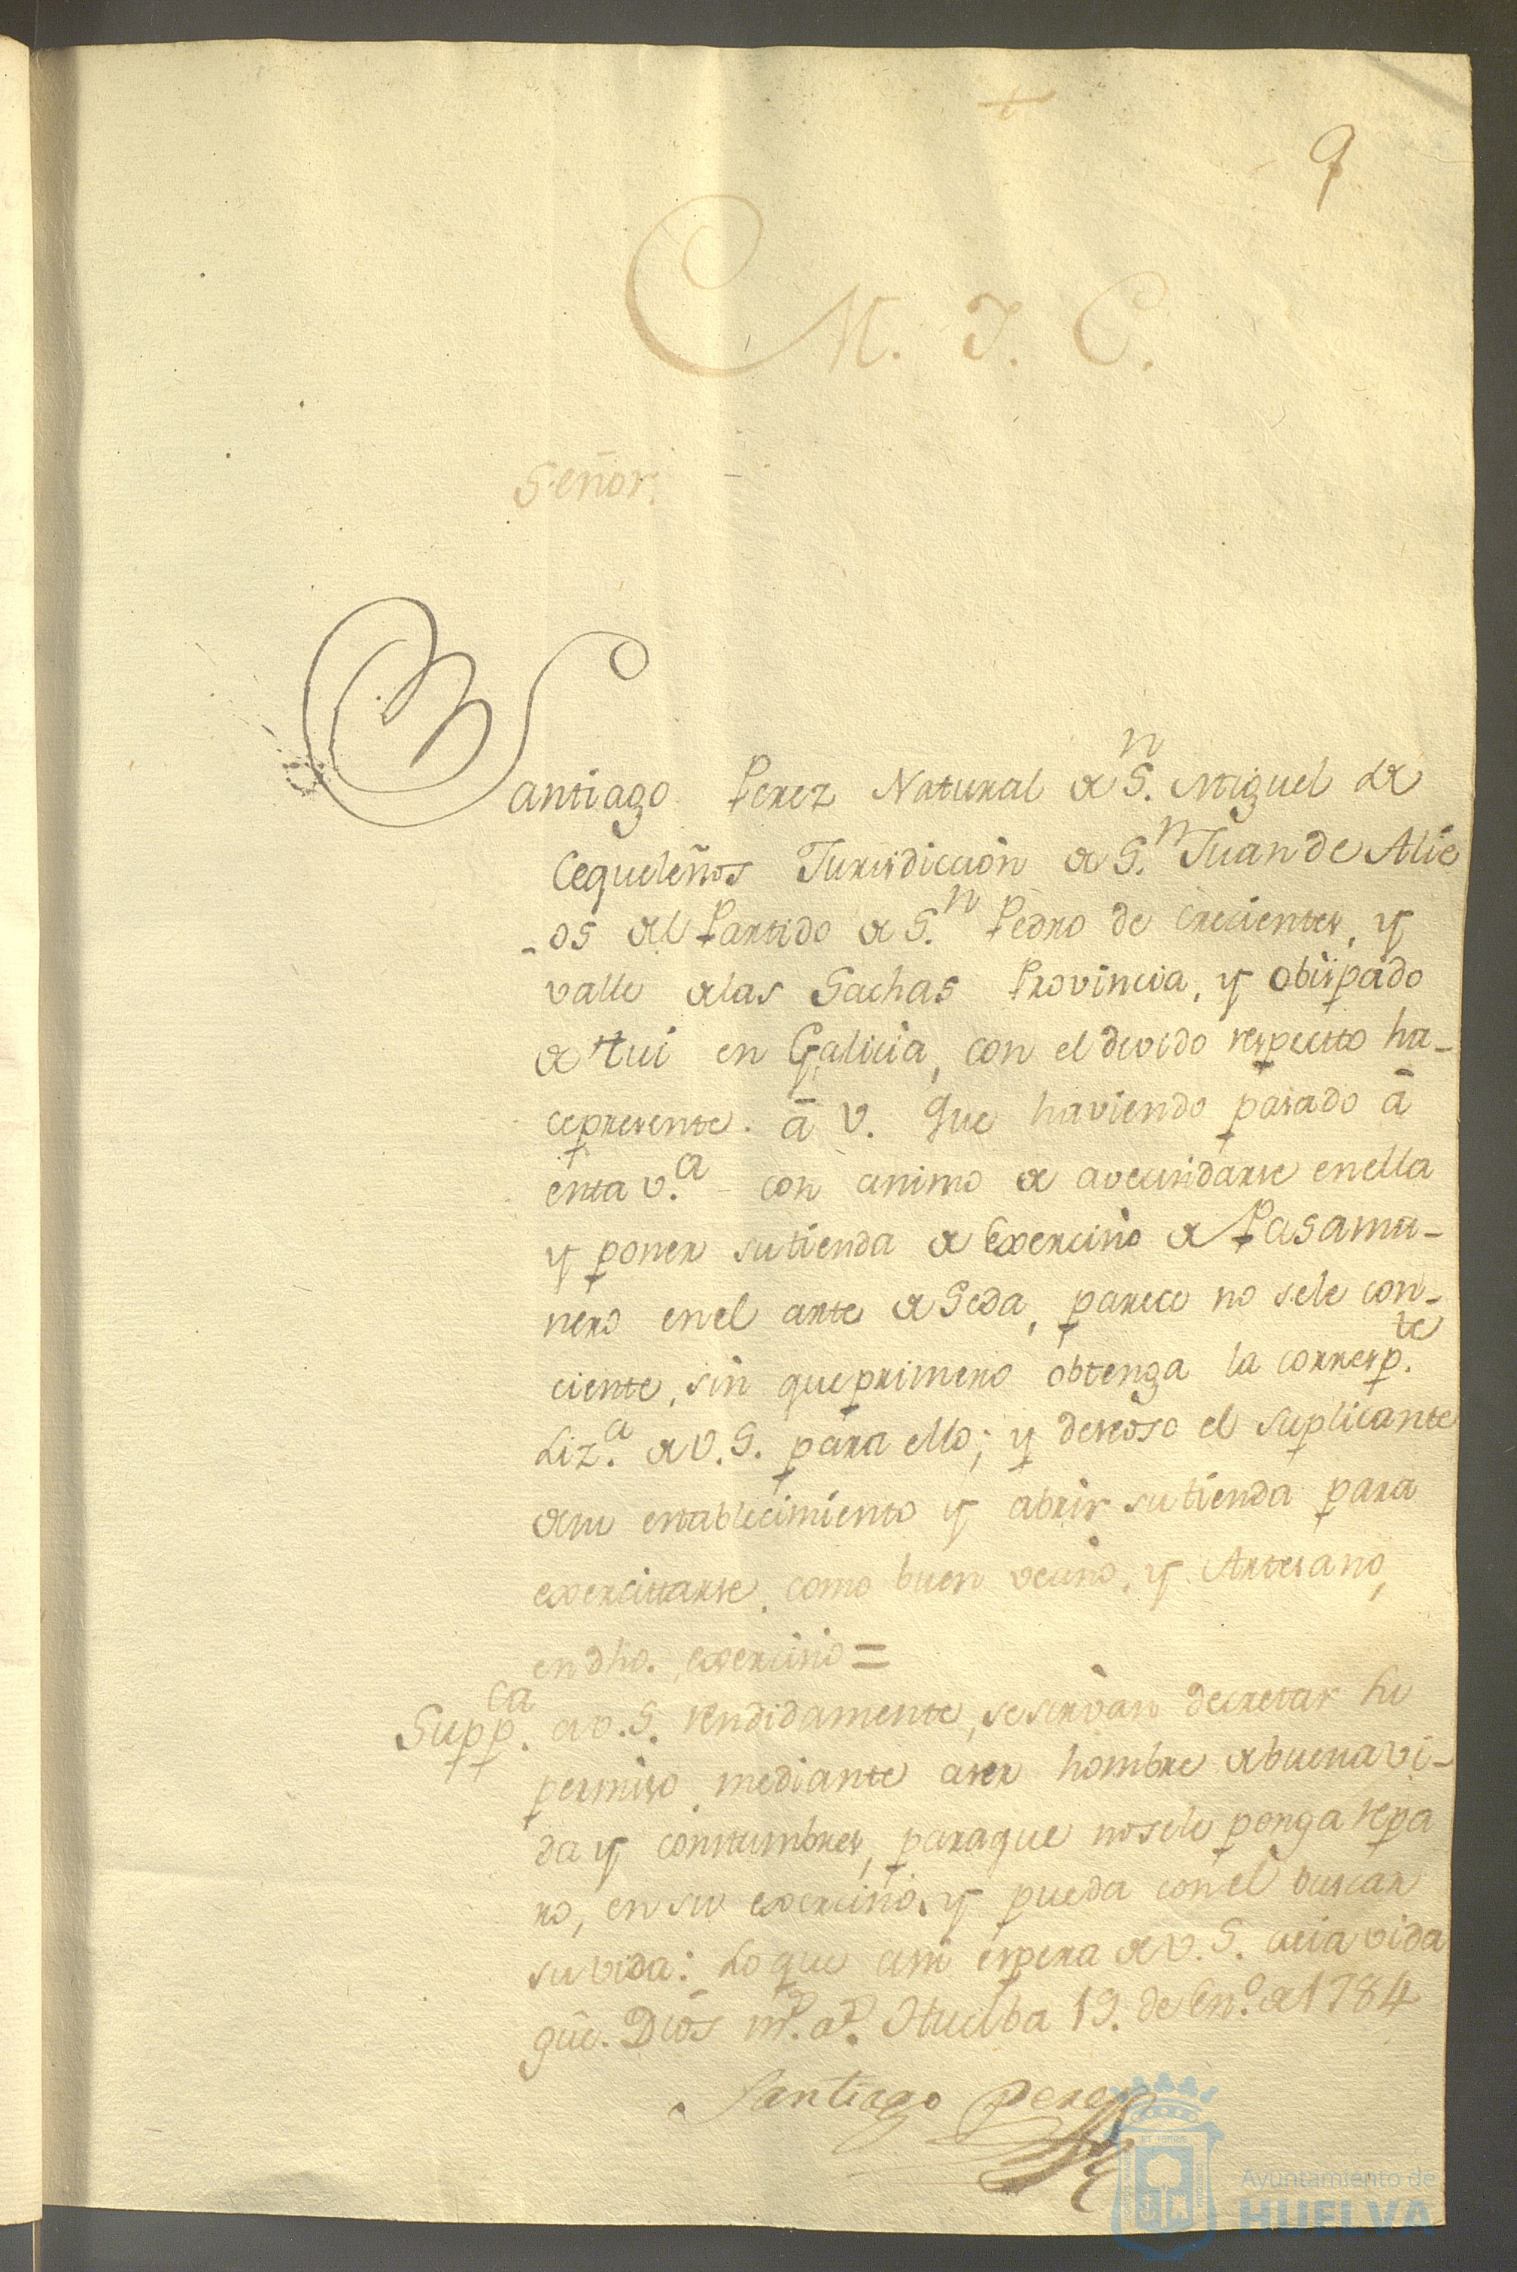 9
M. J. C.
Señor.
Santiago Perez Natural de S.n Miguel de
Cequeleños Jurisdiccion de S.n Juan de Alie
-os del Partido de S.n Pedro de crecientes, y
valle delas Gachas Provincia, y obispado
de Tui en Galicia, con el devido respecto ha-
ce presente. â V. que haviendo pasado â
esta v.ca con animo de avecindarse enella
y poner su tienda de Exercicio de Pasama-
nero enel arte de Seda, parece no sele con-
ciente, sin que primero obtenga la corresp.te
Liz.a de V.S. para ello; y deseoso el suplicante
desu establecimiento y abrir su tienda para
exercitarse como buen vecino, y Artesano,
en dho. exercicio =
Supp.ca a V.S. rendidamente, se sirvan decretar su
permiso mediante aser hombre de buena vi-
da y constumbres, para que nosele ponga repa
ro, en su exercicio, y pueda con el buscar
su vida: Lo que asi espera de V.S. cuia vida
gûe. Dios m.s a.s Huelba 19. de En.o de 1784
Santiago Perez
Ayuntamiento de
HUELVA